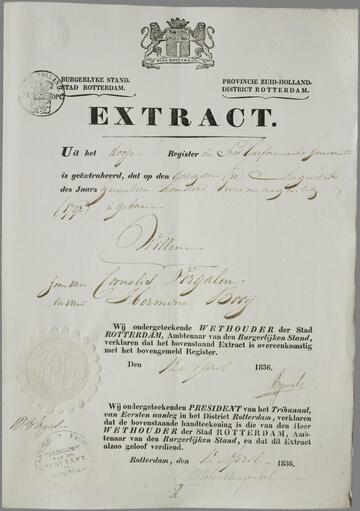 STAD ROTTERDAM
BURGERLYKE STAND.
STAD ROTTERDAM.
PROVINCIE ZUID-HOLLAND.
DISTRICT ROTTERDAM.
EXTRACT.
Uit het Doop- Register der Gereformeerde Gemeente
is geëxtraheerd, dat op den
des Jaars zeventien honderd twee en negentig
(1792) is geboren
Willem
zoon van Cornelis
en van Hermina Booy
Wij ondergeteekende WETHOUDER der Stad
ROTTERDAM, Ambtenaar van den Burgerlijken Stand,
verklaren dat het bovenstaand Extract is overeenkomstig
met het bovengemeld Register.
Den 12 April 1836.
Wij ondergeteekenden PRESIDENT van het Tribunaal,
van Eersten aanleg in het District Rotterdam, verklaren
dat de bovenstaande handteekening is die van den Heer
WETHOUDER der Stad ROTTERDAM, Amb-
tenaar van den Burgerlijken Stand, en dat dit Extract
alzoo geloof verdiend.
Rotterdam, den April 1836.